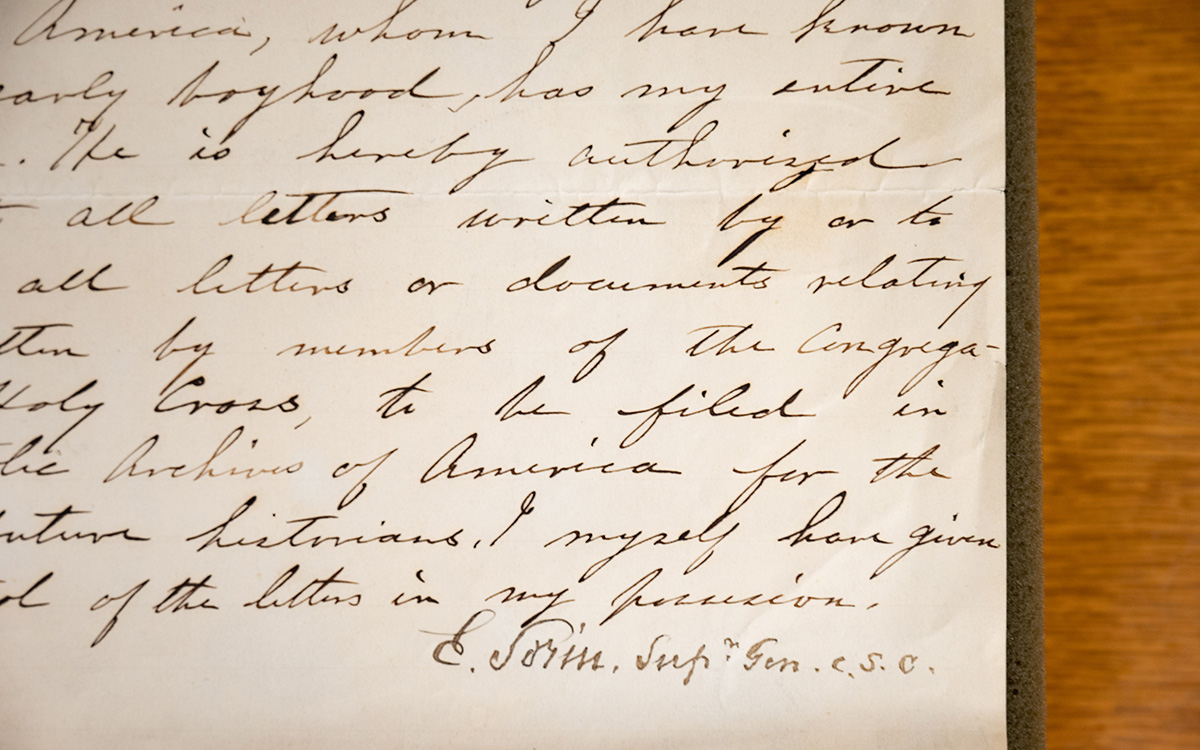 America, whom I have known
early boyhood, has my entire
. He is hereby authorized
all letters written by or to
all letters or documents relating
tten by members of the Congrega-
Holy Cross, to be filed in
lic Archives of America for the
future historians. I myself have given
ol of the letters in my possession.
E. Sorin, Supr Gen. c.s.c.